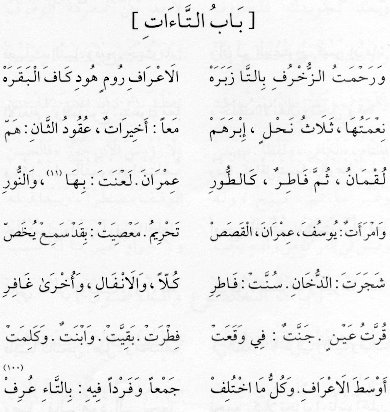 [ بَابُ التَّاءَاتِ ]
وَرَحْمَتُ الزُّخْرُفِ بِالتَّا زَبَرَهْ الَاعْرَافِ رُومٍ هُودِ كَافَ الْبَقَرَهْ
نِعْمَتُهَا، ثَلَاثُ نَحْلٍ، إِبْرَهَمْ مَعاً: أَخِيرَاتٌ، عُقُودُ الثَّانِ: هَمّْ
لُقْمَانُ، ثُمَّ فَاطِرٌ، كَالطُّورِ عِمْرَانَ. لَعْنَتَ: بِهَا (١١)، وَالنُّورِ
وَامْرَأَتٌ: يُوسُفَ، عِمْرَانَ، الْقَصَصْ تَحْرِيمُ. مَعْصِيَتْ: بِقَدْ سَمِعْ يُخَصّْ
شَجَرَتَ: الدُّخَانِ. سُنَّتْ: فَاطِرِ كُلّاً، وَالَانْفَالِ، وَأُخْرَىٰ غَافِرِ
قُرَّتُ عَيْنٍ. جَنَّتٌ: فِي وَقَعَتْ فِطْرَتْ. بَقِيَّتْ. وَابْنَتٌ. وَكَلِمَتْ
أَوْسَطَ الَاعْرَافِ. وَكُلُّ مَا اخْتُلِفْ جَمْعاً وَفَرْداً فِيهِ: بِالتَّاءِ عُرِفْ (١٠٠)